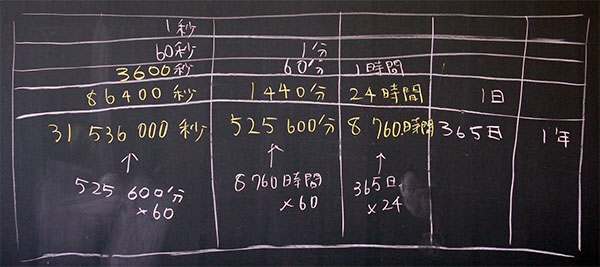 1秒
60秒 1分
3600秒 60分 1時間
86400秒 1440分 24時間 1日
31 536 000秒 525 600分 8 760時間 365日 1年
↑ ↑ ↑
525 600分 8 760時間 365日
×60 ×60 ×24